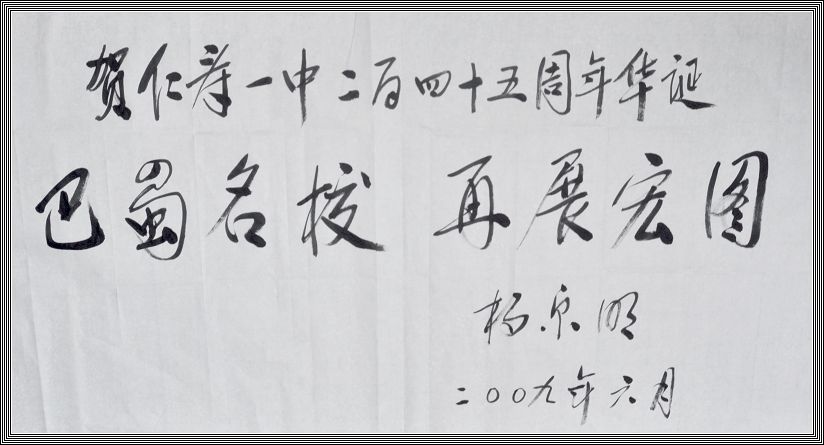 贺仁寿一中二百四十五周年华诞
巴蜀名校 再展宏图
杨泉明
二〇〇九年六月